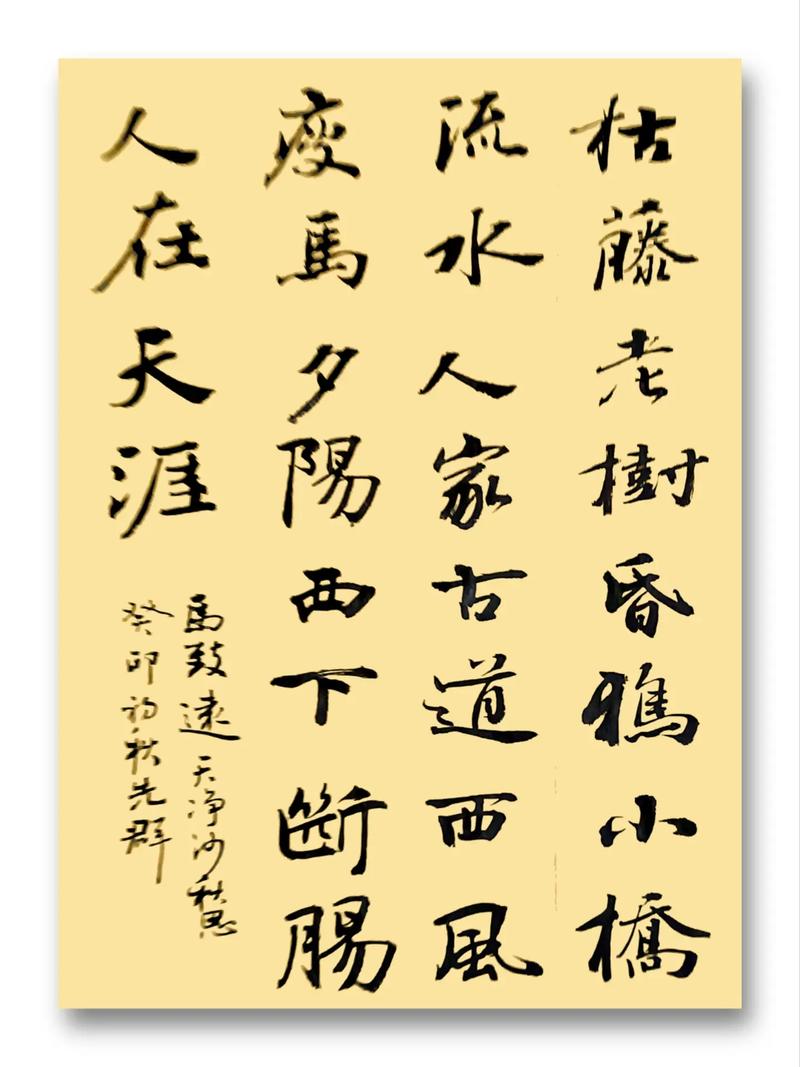 枯藤老樹昏鴉小橋
流水人家古道西風
瘦馬夕陽西下斷腸
人在天涯
馬致遠天净沙秋思
癸卯初秋先群